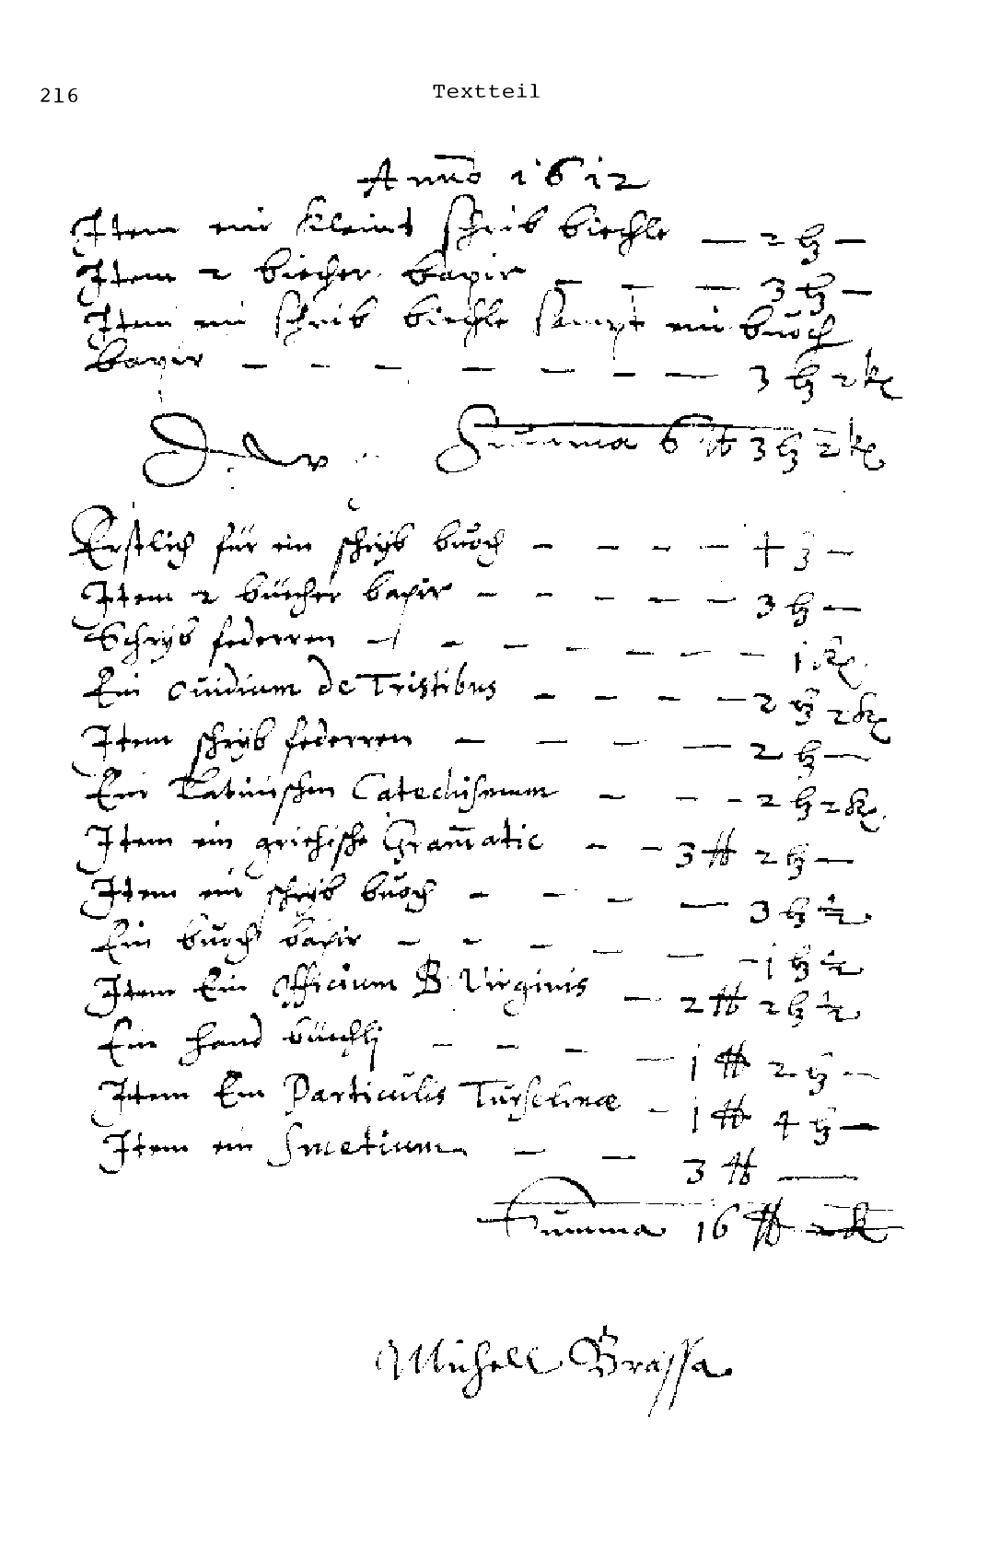 216
Textteil
Anno 1612
Item ein kleins schrib biechle — 2 ß —
Item 2 biecher bapir — — — 3 ß —
Item ein schrib biechle sampt ein buoch
bapir — — — — — — — 3 ß 2 k
Summa 6 ℔ 3 ß 2 k
Erstlich für ein schryb buoch — — — — 4 ß —
Item 2 büecher bapir — — — — — 3 ß —
Schryb federren — — — — — — — 1 k
Ein Ouidium de Tristibus — — — — 2 ß 2 k
Item schryb federren — — — — 2 ß —
Ein Latinischen Catechismum — — — 2 ß 2 k
Item ein griechische Gram̅atic — — 3 ℔ 2 ß —
Item ein schryb buoch — — — — 3 ß ½
Ein buoch bapir — — — — — — 1 ß ½
Item Ein Officium B. Virginis — 2 ℔ 2 ß ½
Ein hand büechlj — — — — 1 ℔ 2 ß —
Item Ein Particulis Turselinæ — 1 ℔ 4 ß —
Item ein Smetium — — 3 ℔ —
Summa 16 ℔ 2 k
Michell Brassa